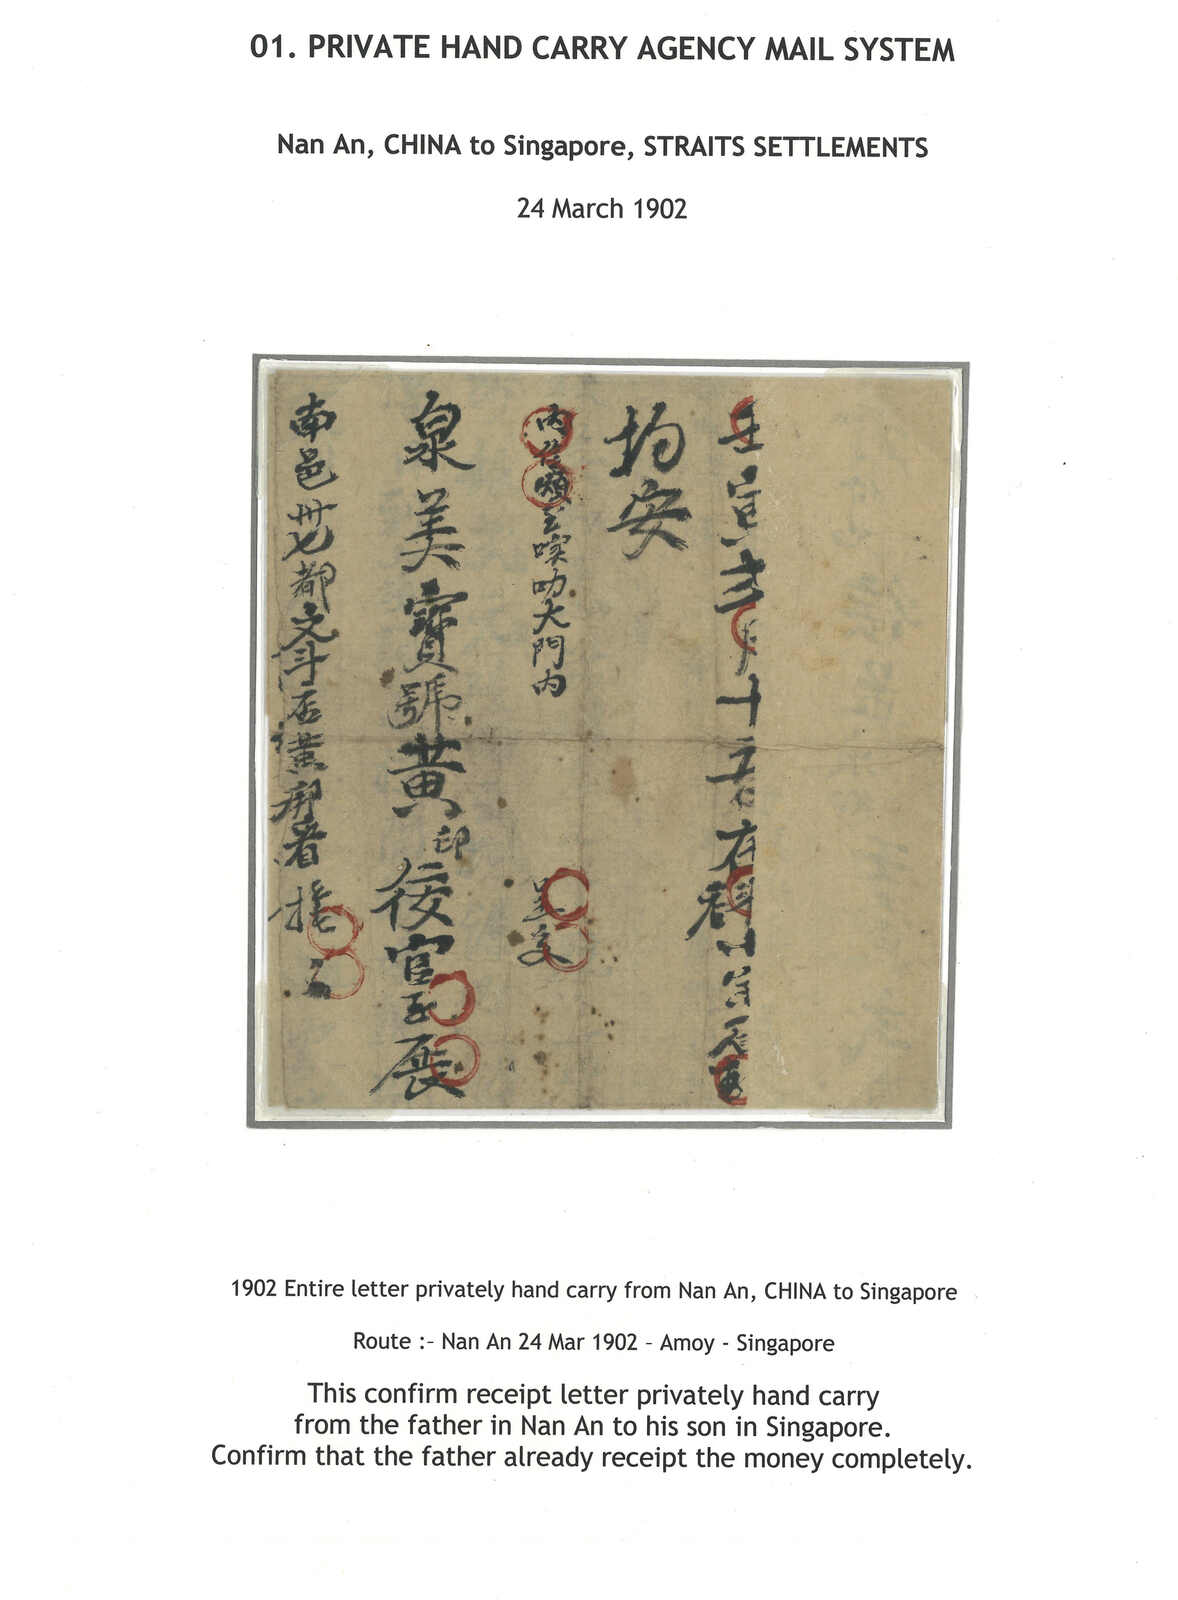 01. PRIVATE HAND CARRY AGENCY MAIL SYSTEM
Nan An, CHINA to Singapore, STRAITS SETTLEMENTS
24 March 1902
壬寅弍月十五
均安
內信煩至㖭叻大門內
呈交
泉美寶號黃印㑣官
展
南邑卅七都文斗
黃
者
1902 Entire letter privately hand carry from Nan An, CHINA to Singapore
Route :- Nan An 24 Mar 1902 – Amoy - Singapore
This confirm receipt letter privately hand carry
from the father in Nan An to his son in Singapore.
Confirm that the father already receipt the money completely.